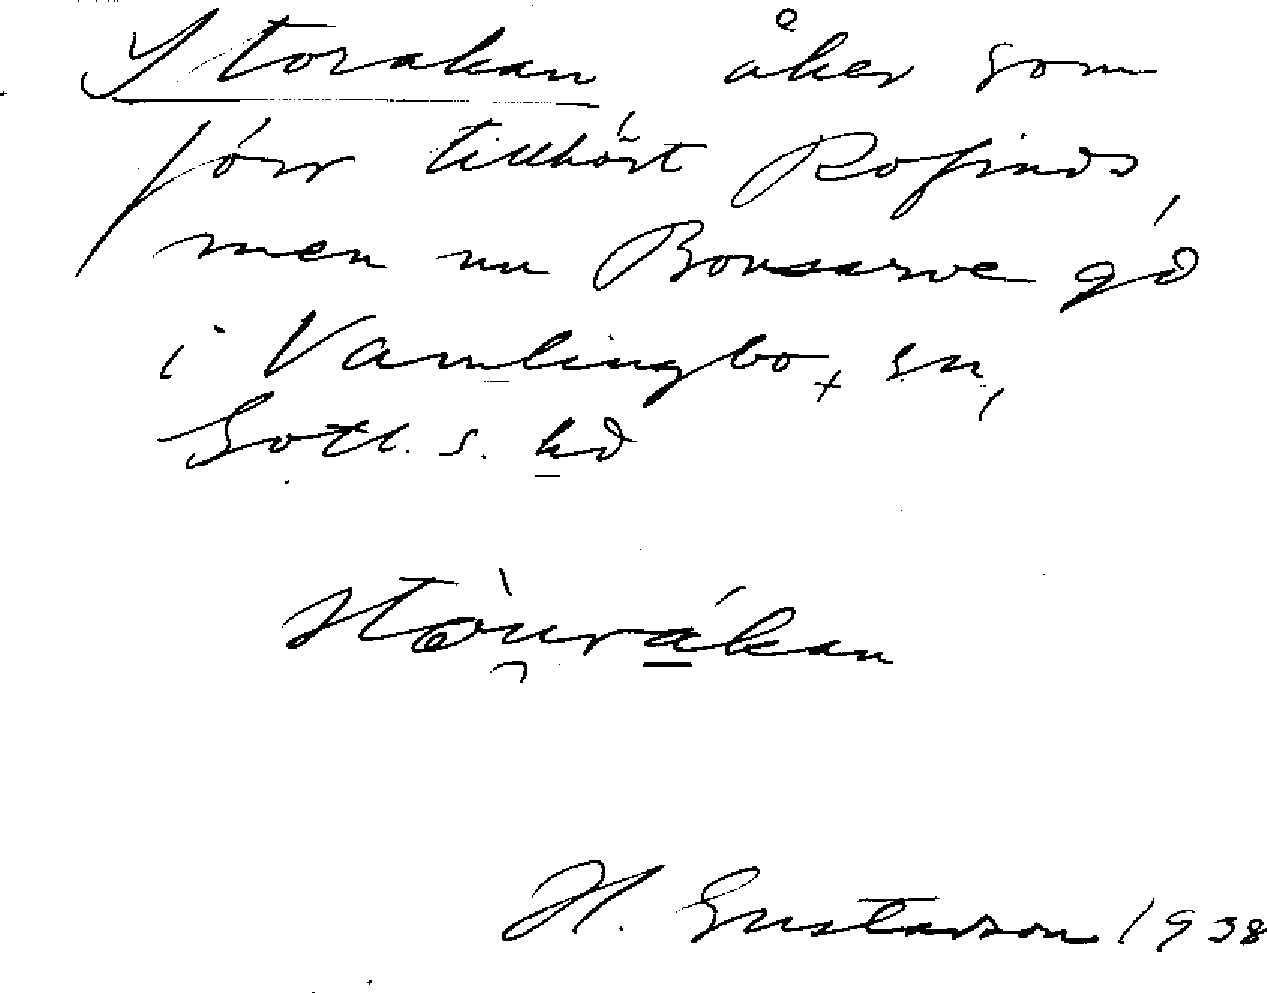 Storakan, åker som
förr tillhört Rofinds,
men nu Bonsarve gd
i Vamlingbo sn,
Gotl. s. hd
stòu̯rákan
H. Gustavson 1938